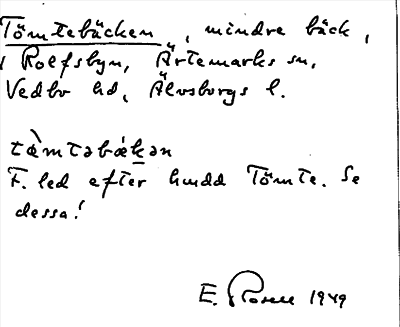 Tömtebäcken, mindre bäck,
i Rolfsbyn, Ärtemarks sn,
Vedbo hd, Älvsborgs l.
tæ̀mtəbækən
F. led efter hmdd Tömte. Se
dessa!
E. Rosell 1949